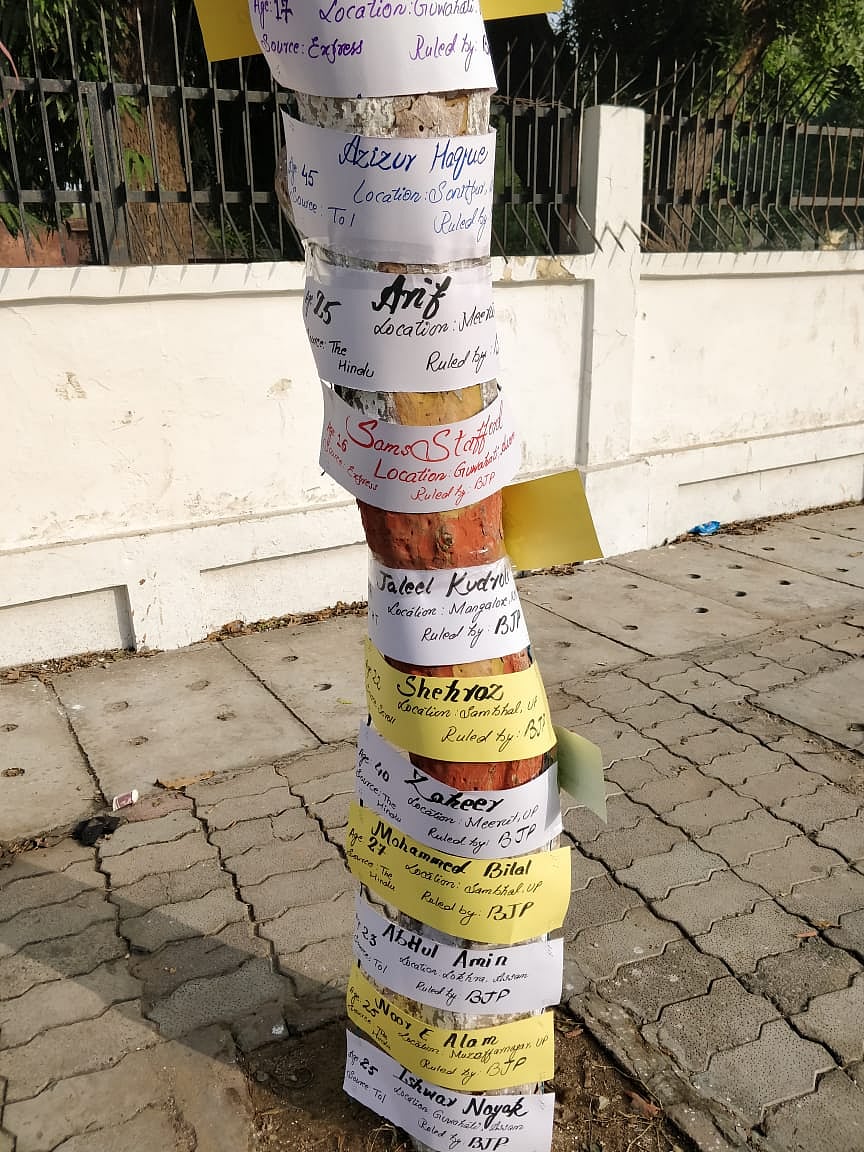 Age: 17 Location: Guwahati.
Source: Express Ruled by:
Azizur Haque
Age 45 Location:
Source: ToI Ruled by:
Arif
Age 7.5 Location:
Source: The Hindu Ruled by:
Sams Stafford
Age 16 Location: Guwahati.
Source: Express Ruled by: BJP
Jaleel
Location: Mangalore,
Ruled by: BJP
Shehroz
Age 22 Location: Sambhal, UP
Scroll Ruled by: BJP
Zaheer
Age 40 Location: Meerut, UP
Source: The Hindu Ruled by: BJP
Mohammed Bilal
Age 27 Location: Sambhal, UP
Source: The Hindu Ruled by: BJP
Abdul Amin
Age 23 Location Assam
Source: ToI Ruled by BJP
Noor E Alam
Age: 25 Location Muzaffarnagar, UP
Source: The Hindu Ruled by: BJP
Ishwar Nayak
Age: 25 Location Guwahati, Assam
Source: ToI Ruled by BJP